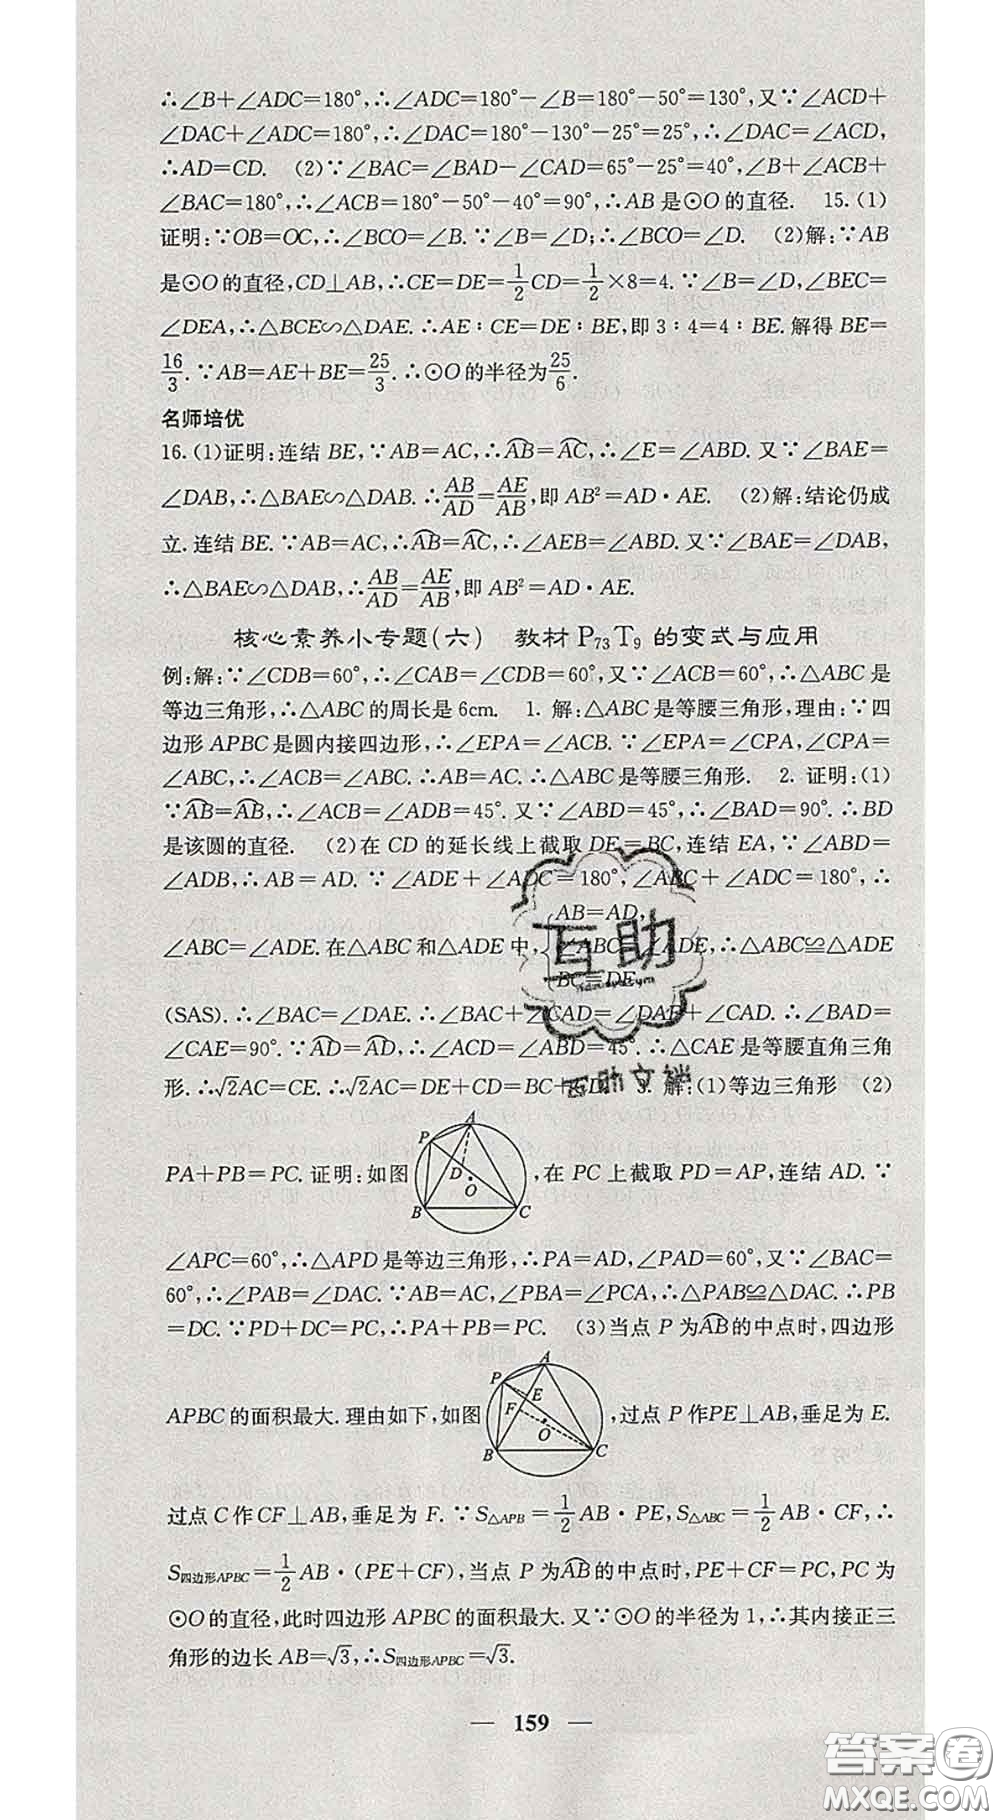 ∴∠B+∠ADC=180°,∴∠ADC=180°-∠B=180°-50°=130°,又∵∠ACD+
∠DAC+∠ADC=180°,∴∠DAC=180°-130°-25°=25°,∴∠DAC=∠ACD,
∴AD=CD. (2)∵∠BAC=∠BAD-∠CAD=65°-25°=40°,∠B+∠ACB+
∠BAC=180°,∴∠ACB=180°-50°-40°=90°,∴AB是⊙O的直径. 15.(1)
证明:∵OB=OC,∴∠BCO=∠B.∵∠B=∠D;∴∠BCO=∠D. (2)解:∵AB
是⊙O的直径,CD⊥AB,∴CE=DE=1/2CD=1/2×8=4.∵∠B=∠D,∠BEC=
∠DEA,∴△BCE∽△DAE.∴AE∶CE=DE∶BE,即3∶4=4∶BE.解得BE=
16/3.∵AB=AE+BE=25/3.∴⊙O的半径为25/6.
名师培优
16.(1)证明:连结BE,∵AB=AC,∴⌒AB=⌒AC,∴∠E=∠ABD.又∵∠BAE=
∠DAB,∴△BAE∽△DAB.∴AB/AD=AE/AB,即AB²=AD·AE. (2)解:结论仍成
立.连结BE.∵AB=AC,∴⌒AB=⌒AC,∴∠AEB=∠ABD.又∵∠BAE=∠DAB,
∴△BAE∽△DAB,∴AB/AD=AE/AB,即AB²=AD·AE.
核心素养小专题(六) 教材P₇₃T₉的变式与应用
例:解:∵∠CDB=60°,∴∠CAB=∠CDB=60°,又∵∠ACB=60°,∴△ABC是
等边三角形,∴△ABC的周长是6cm. 1. 解:△ABC是等腰三角形,理由:∵四
边形APBC是圆内接四边形,∴∠EPA=∠ACB.∵∠EPA=∠CPA,∠CPA=
∠ABC,∴∠ACB=∠ABC.∴AB=AC.∴△ABC是等腰三角形. 2. 证明:(1)
∵⌒AB=⌒AB,∴∠ACB=∠ADB=45°.又∵∠ABD=45°,∴∠BAD=90°.∴BD
是该圆的直径. (2)在CD的延长线上截取DE=BC,连结EA,∵∠ABD=
∠ADB,∴AB=AD.∵∠ADE+∠ADC=180°,∠ABC+∠ADC=180°,∴
∠ABC=∠ADE.在△ABC和△ADE中,{AB=AD, ∠ABC=∠ADE, BC=DE,∴△ABC≌△ADE
(SAS).∴∠BAC=∠DAE.∴∠BAC+∠CAD=∠DAE+∠CAD.∴∠BAD=
∠CAE=90°.∵⌒AD=⌒AD,∴∠ACD=∠ABD=45°.∴△CAE是等腰直角三角
形.∴√2AC=CE.∴√2AC=DE+CD=BC+CD. 3. 解:(1)等边三角形 (2)
PA+PB=PC.证明:如图
A
P
D
O
B
C
,在PC上截取PD=AP,连结AD.∵
∠APC=60°,∴△APD是等边三角形,∴PA=AD,∠PAD=60°,又∵∠BAC=
60°,∴∠PAB=∠DAC.∵AB=AC,∠PBA=∠PCA,∴△PAB≌△DAC.∴PB
=DC.∵PD+DC=PC,∴PA+PB=PC. (3)当点P为⌒AB的中点时,四边形
APBC的面积最大.理由如下,如图
A
P
E
F
O
B
C
,过点P作PE⊥AB,垂足为E.
过点C作CF⊥AB,垂足为F.∵S△APB=1/2AB·PE,S△ABC=1/2AB·CF,∴
S四边形APBC=1/2AB·(PE+CF),当点P为⌒AB的中点时,PE+CF=PC,PC为
⊙O的直径,此时四边形APBC的面积最大.又∵⊙O的半径为1,∴其内接正三
角形的边长AB=√3,∴S四边形APBC=√3.
— 159 —
互助
答案卷
MXQE.COM